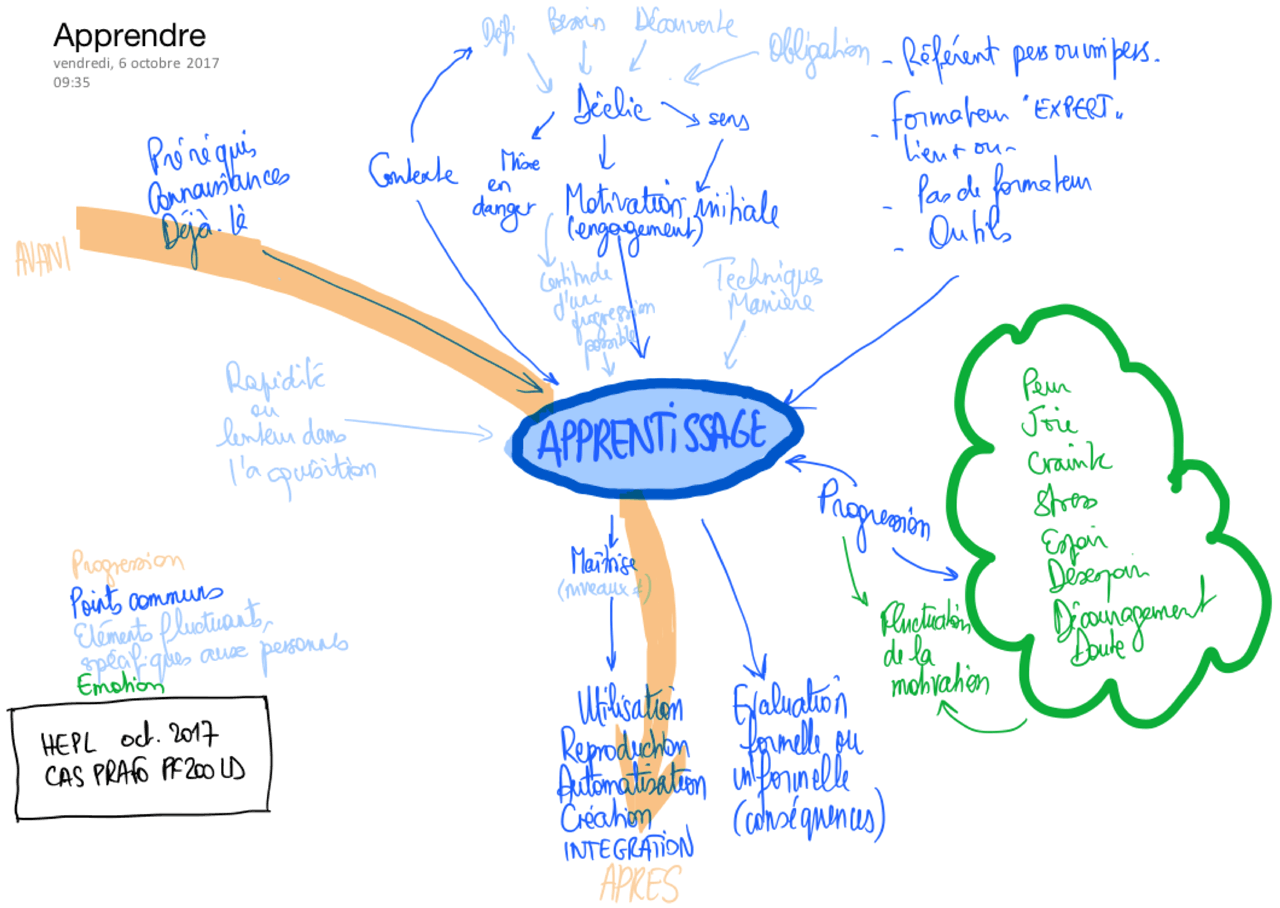 Apprendre
vendredi, 6 octobre 2017
09:35
Défi
Besoin
Découverte
Obligation
Déclic
sens
Mise
en
danger
Motivation initiale
(engagement)
Certitude
d'une
progression
possible
Techniques
Manière
- Référent pers ou impers.
- Formateur "EXPERT"
lien + ou -
- Pas de formateur
- Outils
Contexte
Prérequis
Connaissances
Déjà-là
AVANT
Rapidité
ou
lenteur dans
l'acquisition
APPRENTiSSAGE
Progression
Peur
Joie
Crainte
Stress
Espoir
Desespoir
Découragement
Doute
Fluctuation
de la
motivation
Maîtrise
(niveaux ≠)
Utilisation
Reproduction
Automatisation
Création
INTEGRATION
APRES
Evaluation
formelle ou
informelle
(conséquences)
Progression
Points communs
Eléments fluctuants,
spécifiques aux personnes
Emotion
HEPL oct. 2017
CAS PRAFO PF200